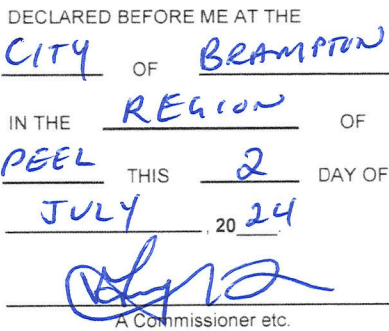 DECLARED BEFORE ME AT THE
CITY OF BRAMPTON
IN THE REGION OF
PEEL THIS 2 DAY OF
JULY, 2024
A Commissioner etc.